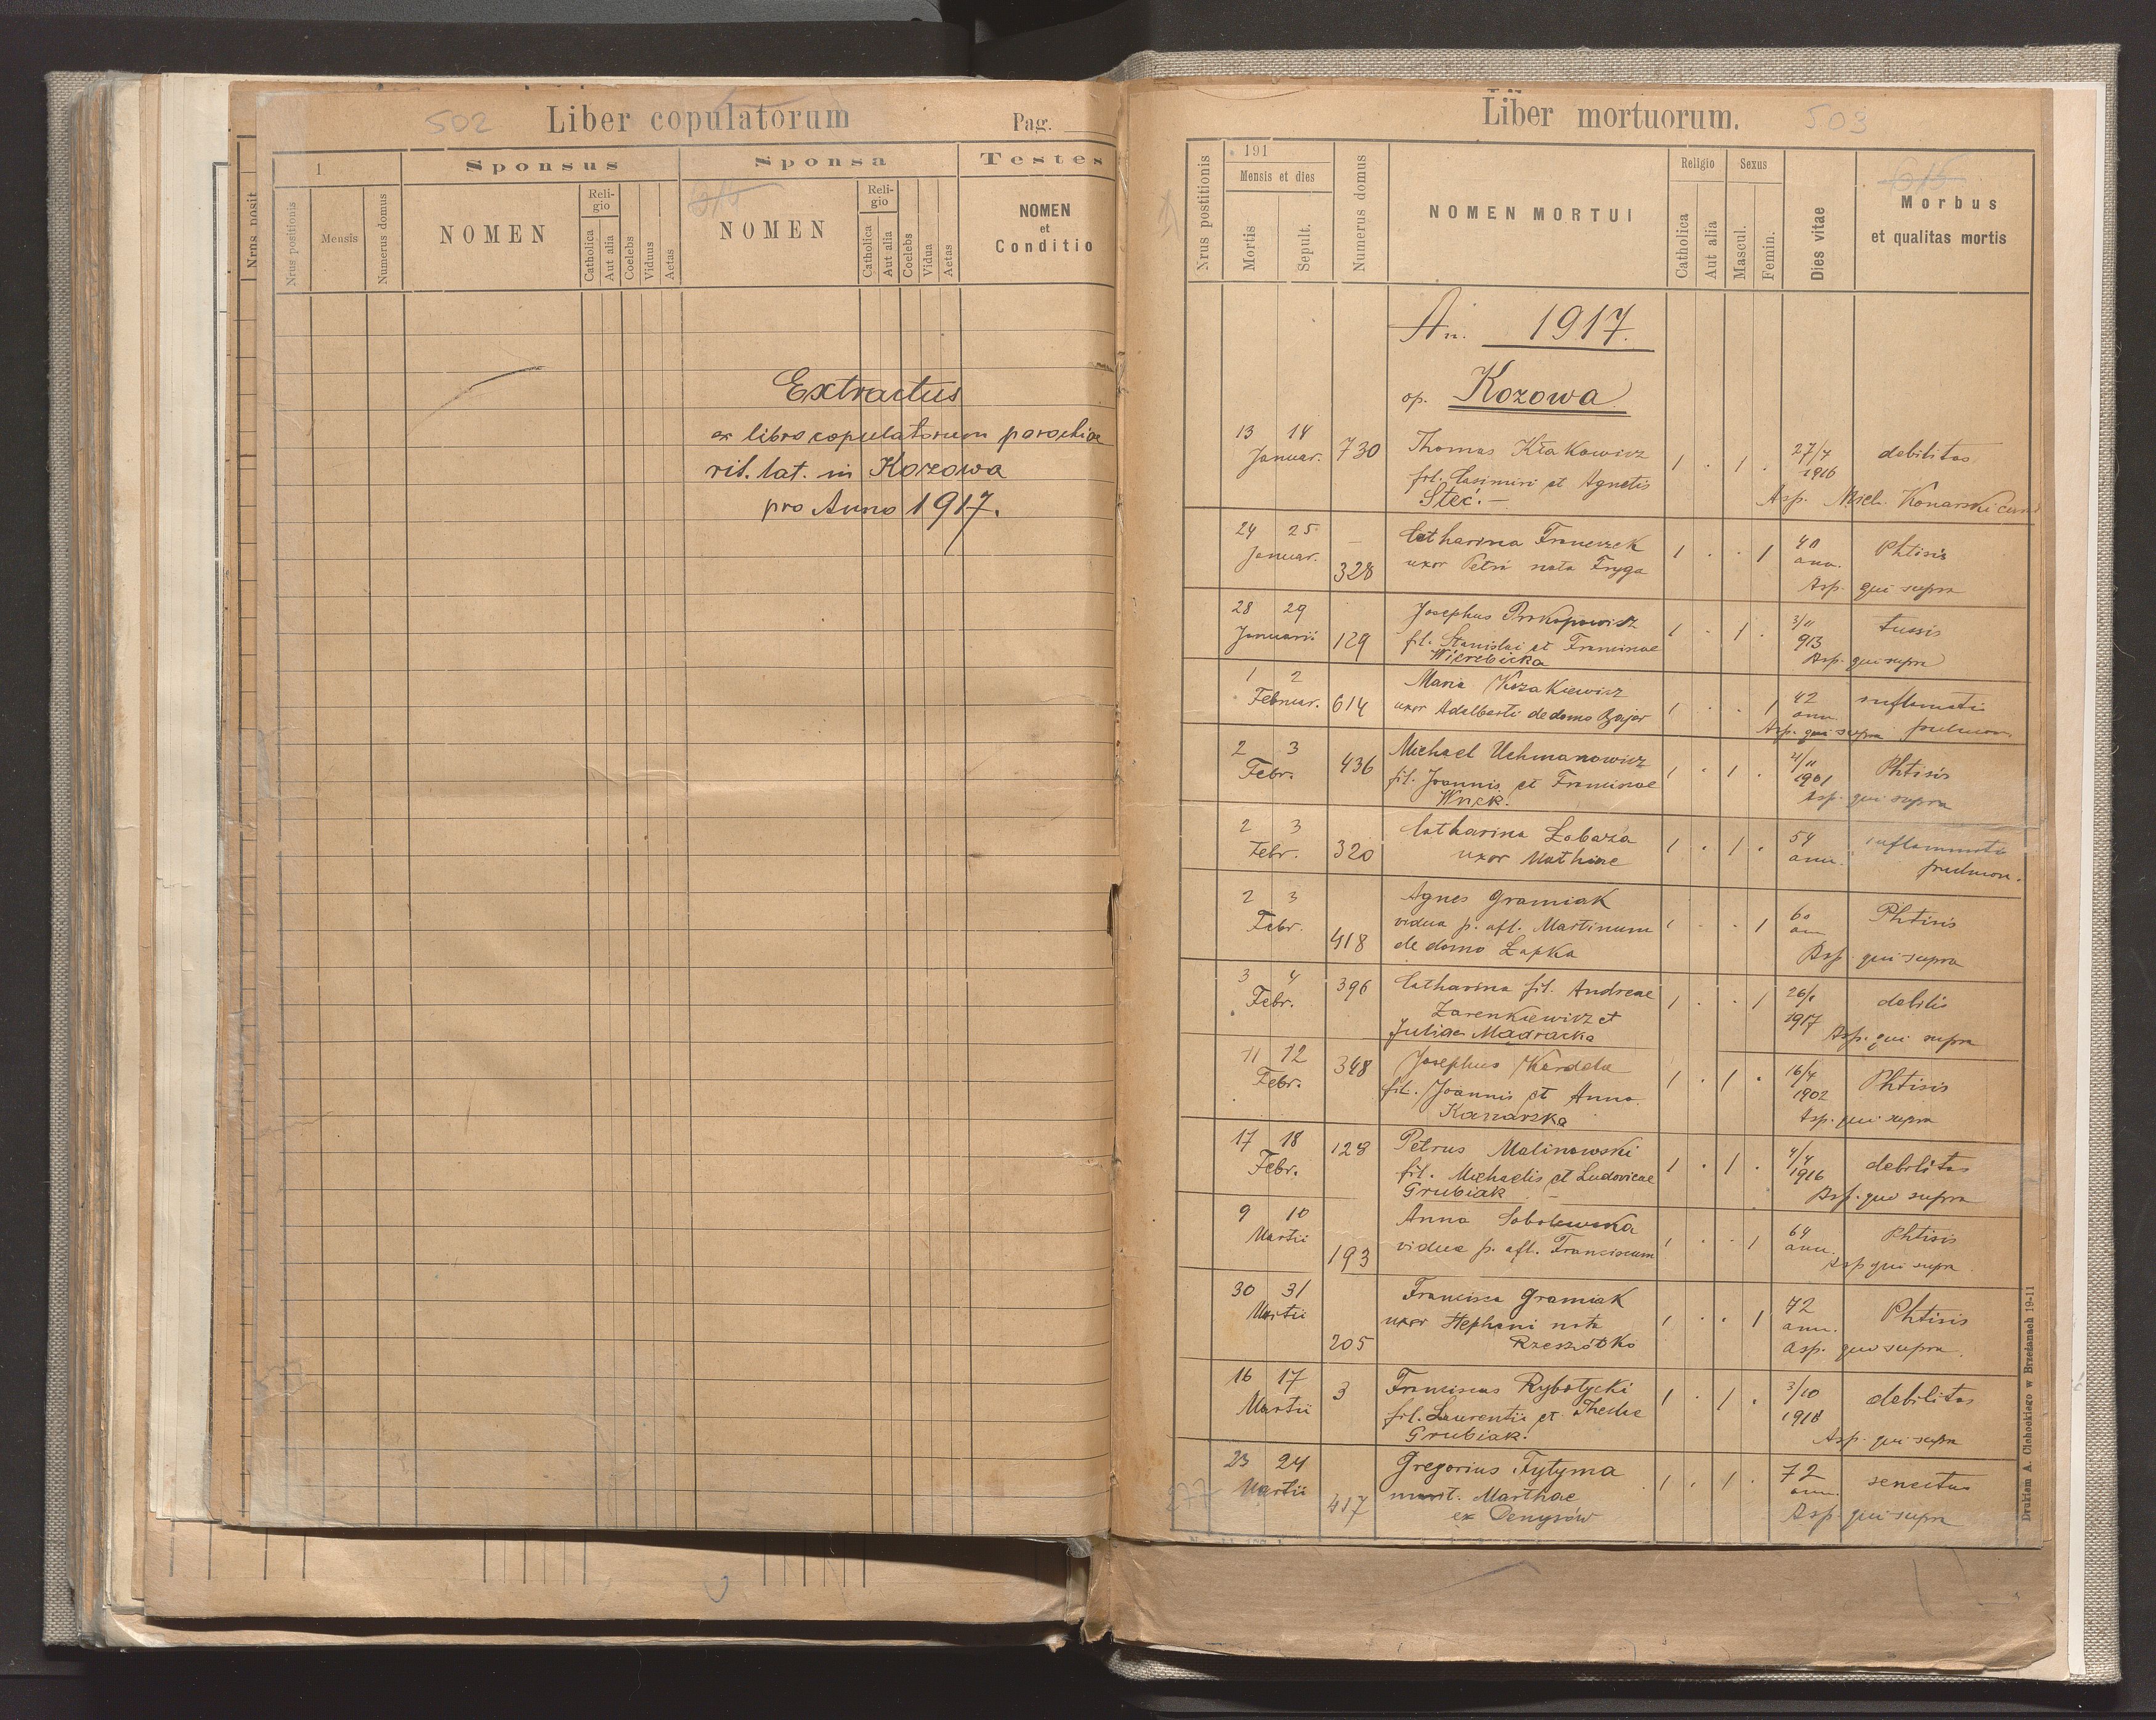 502 Liber copulatorum Pag.
Nrus posit
1 Sponsus Sponsa Testes
Nrus positionis Mensis Numerus domus NOMEN Religio Catholica Aut alia Coelebs Viduus Aetas NOMEN Religio Catholica Aut alia Coelebs Vidua Aetas NOMEN et Conditio
Extractus
ex libro copulatorum parochiae
rit. lat. in Kozowa
pro Anno 1917.
Liber mortuorum. 503
Nrus postitionis 191 Mensis et dies Mortis Sepult. Numerus domus NOMEN MORTUI Religio Catholica Aut alia Sexus Mascul. Femin. Dies vitae Morbus et qualitas mortis
An. 1917.
op. Kozowa
13 14 Januar. 730 Thomas Kłakowicz 1 . 1 . 27/7 1916 debilitas
fil. Casimiri et Agnetis
Steć. - Asp. Mich. Konarski
24 25 Januar. 328 Catharina Franczek 1 . . 1 40 ann. Phtisis
uxor Petri nata Fryga Asp. qui supra
28 29 Januarii 129 Josephus Prokopowicz 1 . 1 . 3/11 913 tussis
fil. Stanislai et Francisae
Wierebicka Asp. qui supra
1 2 Februar. 614 Maria Kozakiewicz 1 . . 1 42 ann. inflamatio
uxor Adalberti de domo Bajor Asp. qui supra pulmon.
2 3 Febr. 436 Michael Uchmanowicz 1 . 1 . 21/11 1901 Phtisis
fil. Joannis et Francisae
Wnęk. Asp. qui supra
2 3 Febr. 320 Catharina Łobaza 1 . 1 . 54 ann. inflammatio
uxor Mathiae pulmon.
2 3 Febr. 418 Agnes Gramiak 1 . . 1 60 ann Phtisis
vidua p. afl. Martinum
de domo Łapka Asp. qui supra
3 4 Febr. 396 Catharina fil. Andreae 1 . . 1 1917 debilis
Zarenkiewicz et
Juliae Madracka Asp. qui supra
11 12 Febr. 348 Josephus Kardela 1 . 1 . 16/4 1902 Phtisis
fil. Joannis et Anna
Kanarska Asp. qui supra
17 18 Febr. 128 Petrus Malinowski 1 . 1 . 4/4 1916 debilitas
fil. Michaelis et Ludovicae
Grubiak Asp. qui supra
9 10 Martii 193 Anna Sobolewska 1 . . 1 64 ann. Phtisis
vidua p. afl. Franciscum Asp qui supra
30 31 Martii 205 Francisca Gramiak 1 . . 1 72 ann. Phtisis
uxor Stephani nata
Rzeszódko Asp. qui supra.
16 17 Martii 3 Franciscus Rybotycki 1 . 1 . 3/10 1916 debilitas
fil. Laurentii et Theclae
Grubiak. Asp. qui supra
23 24 Martii 417 Gregorius Tytyma 1 . 1 . 72 ann. senectus
marit. Marthae
ex Denysów Asp. qui supra
277
Drukiem A. Cichockiego w Brzeżanach 19-11